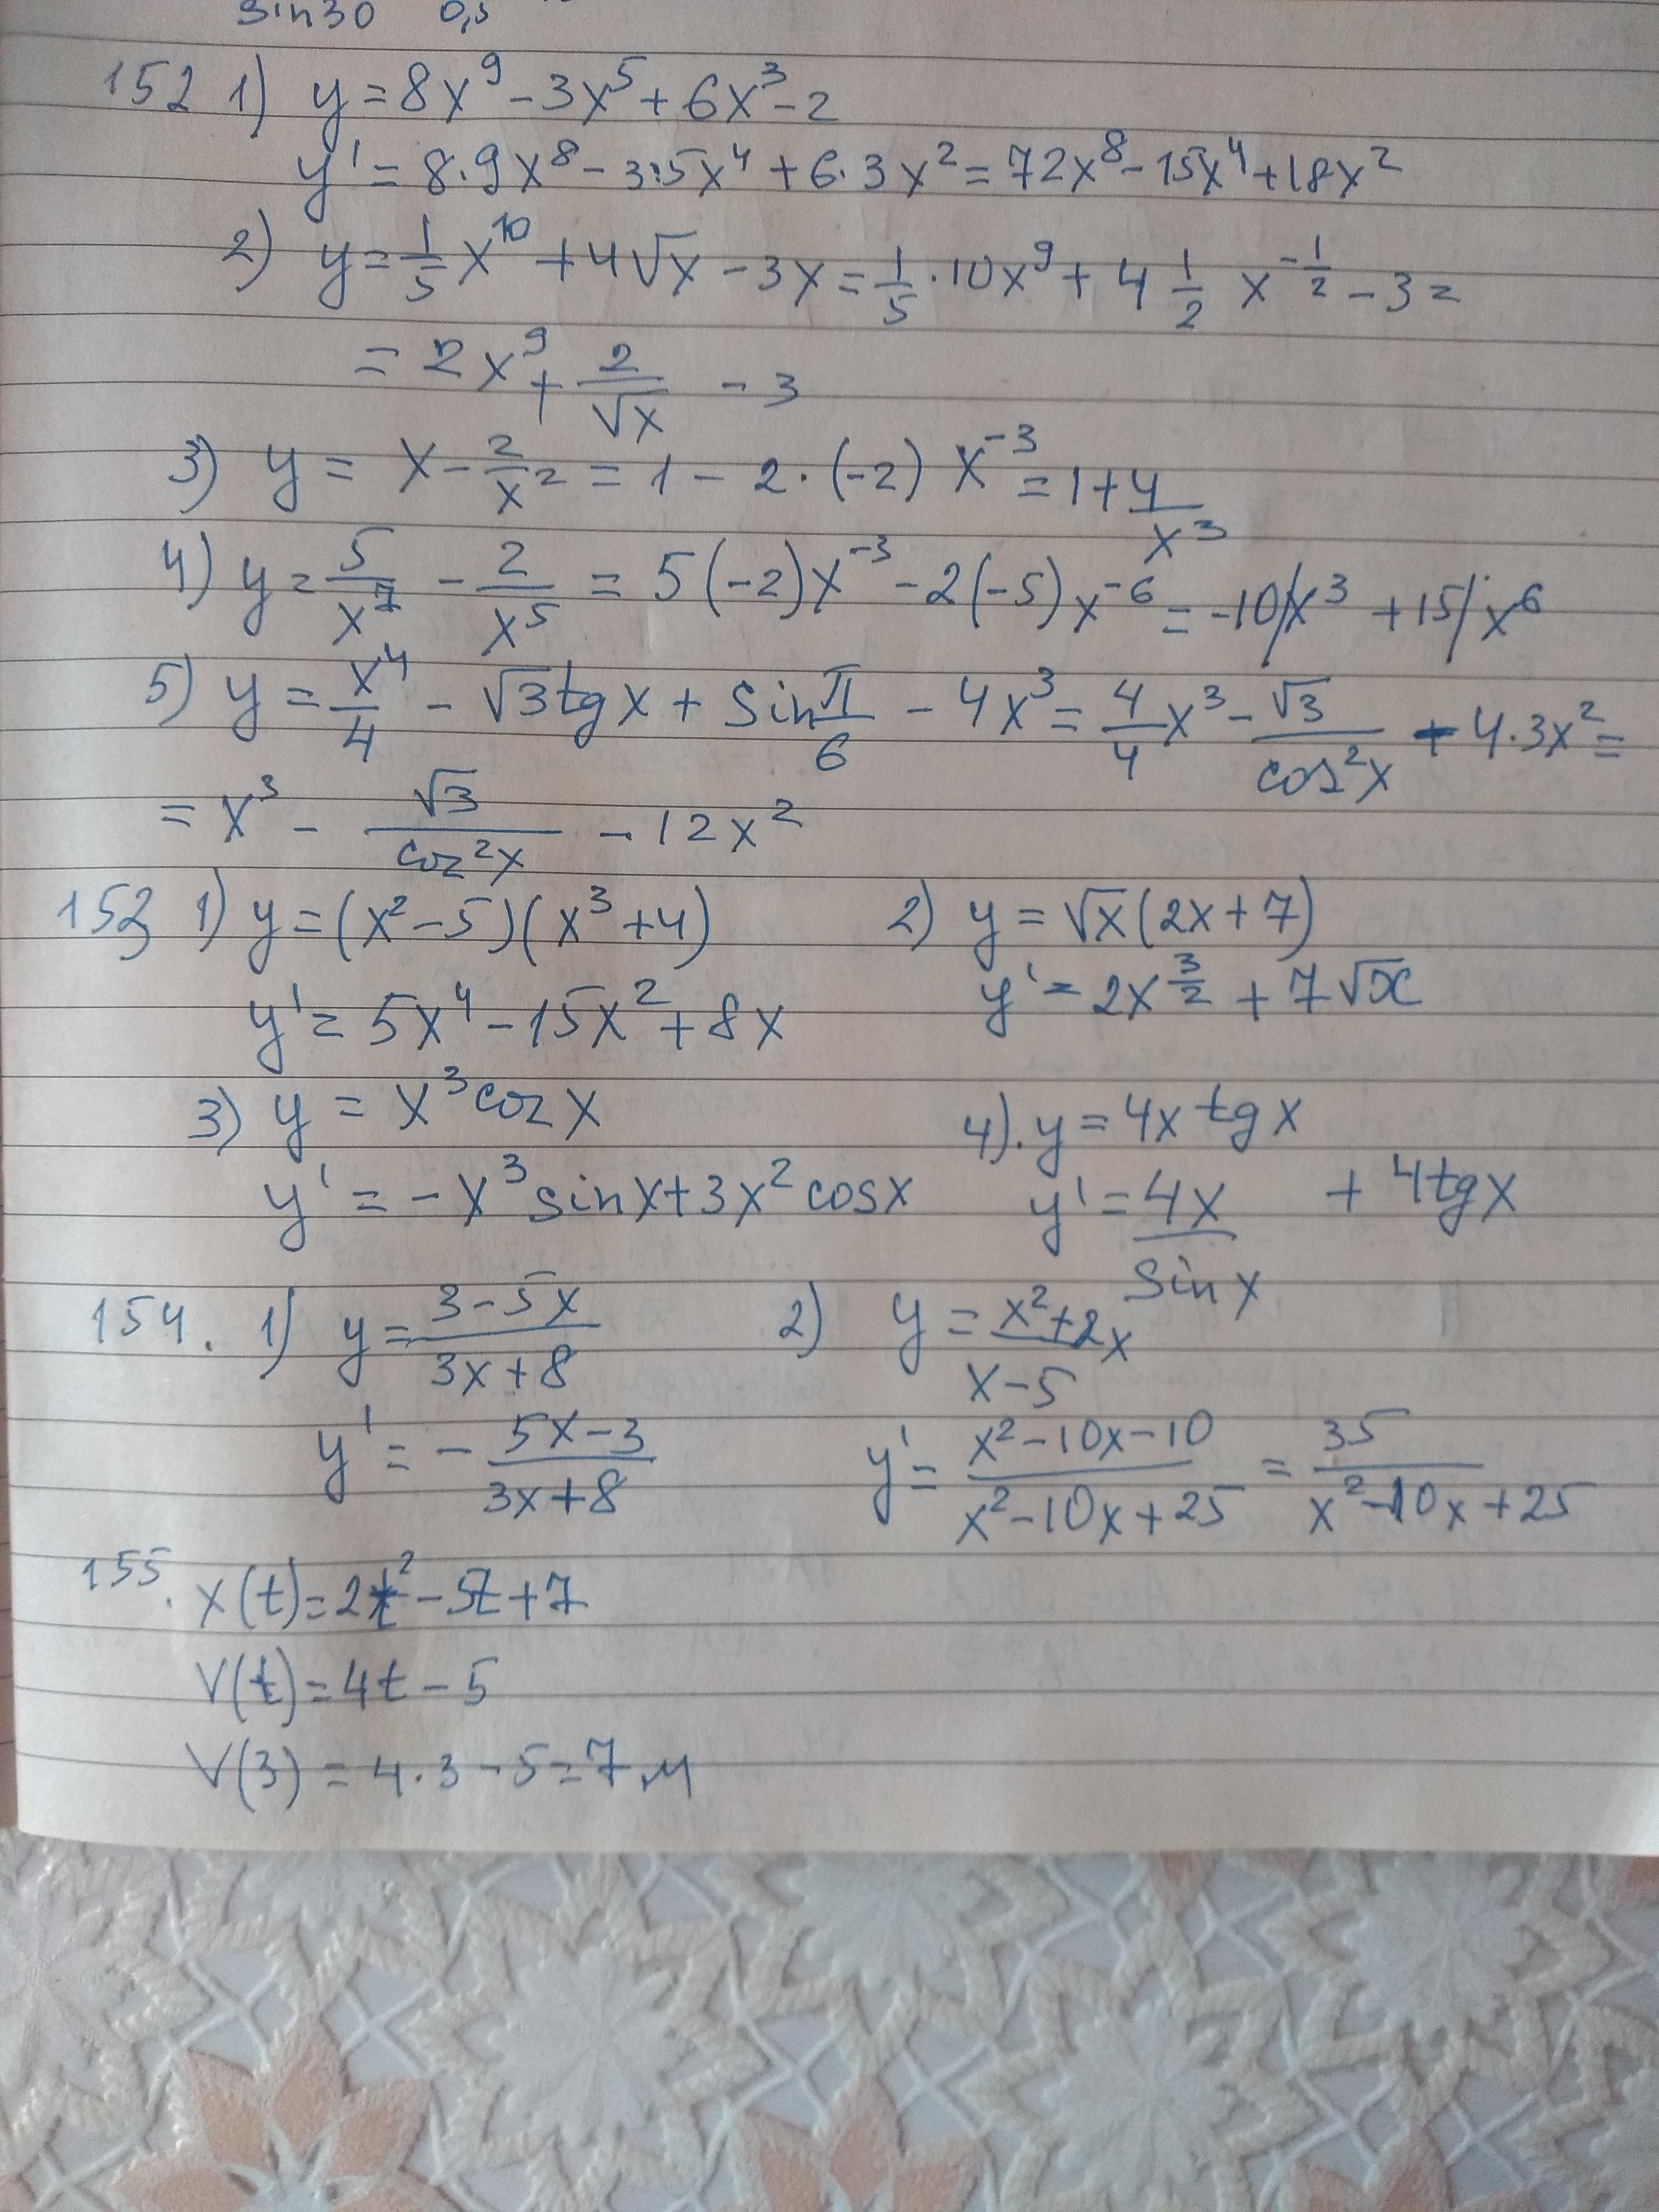 sin30 0,5
152 1) y = 8x⁹ - 3x⁵ + 6x³ - 2
y' = 8·9x⁸ - 3·5x⁴ + 6·3x² = 72x⁸ - 15x⁴ + 18x²
2) y = 1/5 x¹⁰ + 4√x - 3x = 1/5 · 10x⁹ + 4 1/2 x^(-1/2) - 3 =
= 2x⁹ + 2/√x - 3
3) y = x - 2/x² = 1 - 2·(-2) x⁻³ = 1 + 4/x³
4) y = 5/x⁷ - 2/x⁵ = 5(-2)x⁻³ - 2(-5)x⁻⁶ = -10/x³ + 15/x⁶
5) y = x⁴/4 - √3 tg x + sin π/6 - 4x³ = 4/4 x³ - √3/cos²x - 4·3x² =
= x³ - √3/cos²x - 12x²
153 1) y = (x² - 5)(x³ + 4) 2) y = √x (2x + 7)
y' = 5x⁴ - 15x² + 8x y' = 2x^(3/2) + 7√x
3) y = x³ cos x 4). y = 4x tg x
y' = -x³ sin x + 3x² cos x y' = 4x/sin x + 4 tg x
154. 1) y = (3 - 5x)/(3x + 8) 2) y = (x² + 2x)/(x - 5)
y' = - (5x - 3)/(3x + 8) y' = (x² - 10x - 10)/(x² - 10x + 25) = 35/(x² - 10x + 25)
155. x(t) = 2t² - 5t + 7
V(t) = 4t - 5
V(3) = 4·3 - 5 = 7 м